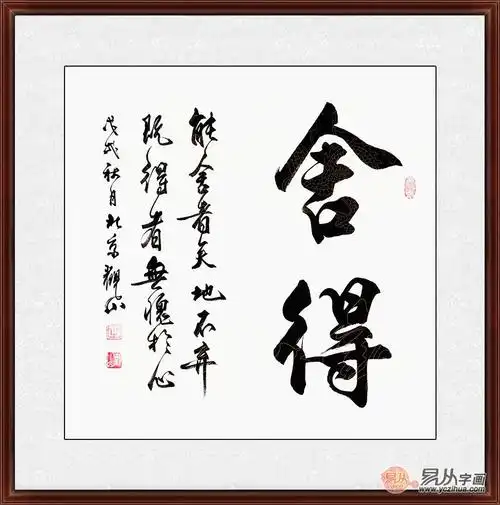 舍得
能舍者天地不弃
既得者無愧於心
戊戌秋月北京觀山
易从字画
www.yczihua.com